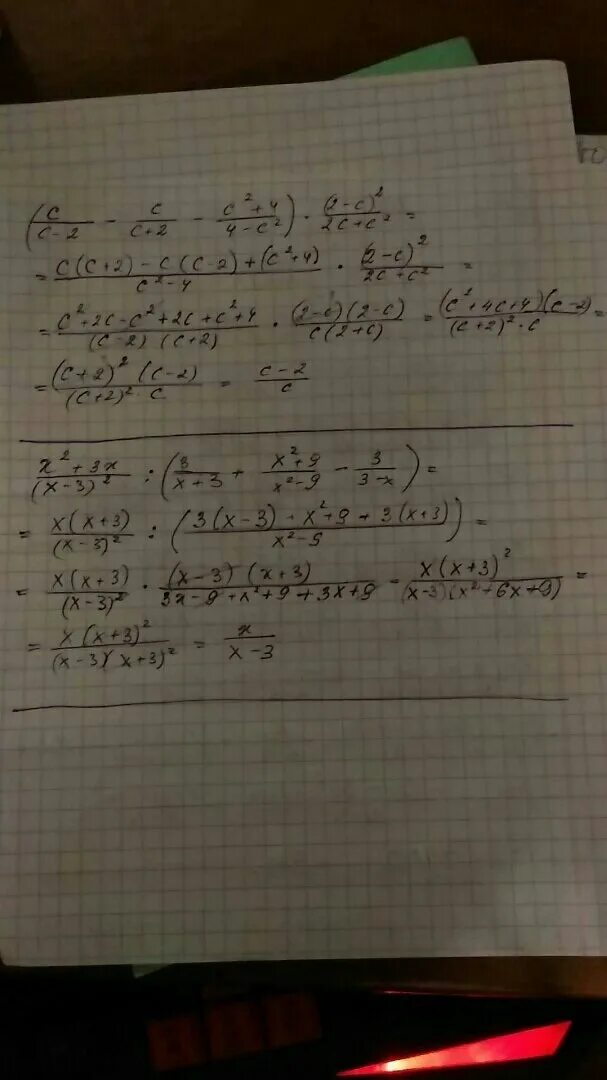 (c/(c-2) - c/(c+2) - (c²+4)/(4-c²)) · (2-c)²/(2c+c²) =
= (c(c+2)-c(c-2)+(c²+4))/(c²-4) · (2-c)²/(2c+c²) =
= (c²+2c-c²+2c+c²+4)/((c-2)(c+2)) · ((2-c)(2-c))/(c(2+c)) = ((c²+4c+4)(c-2))/((c+2)²·c) =
= ((c+2)²(c-2))/((c+2)²·c) = (c-2)/c
(x²+3x)/(x-3)² : (3/(x+3) + (x²+9)/(x²-9) - 3/(3-x)) =
= x(x+3)/(x-3)² : ((3(x-3)+x²+9+3(x+3))/(x²-9)) =
= x(x+3)/(x-3)² · ((x-3)(x+3))/(3x-9+x²+9+3x+9) = x(x+3)²/((x-3)(x²+6x+9)) =
= x(x+3)²/((x-3)(x+3)²) = x/(x-3)